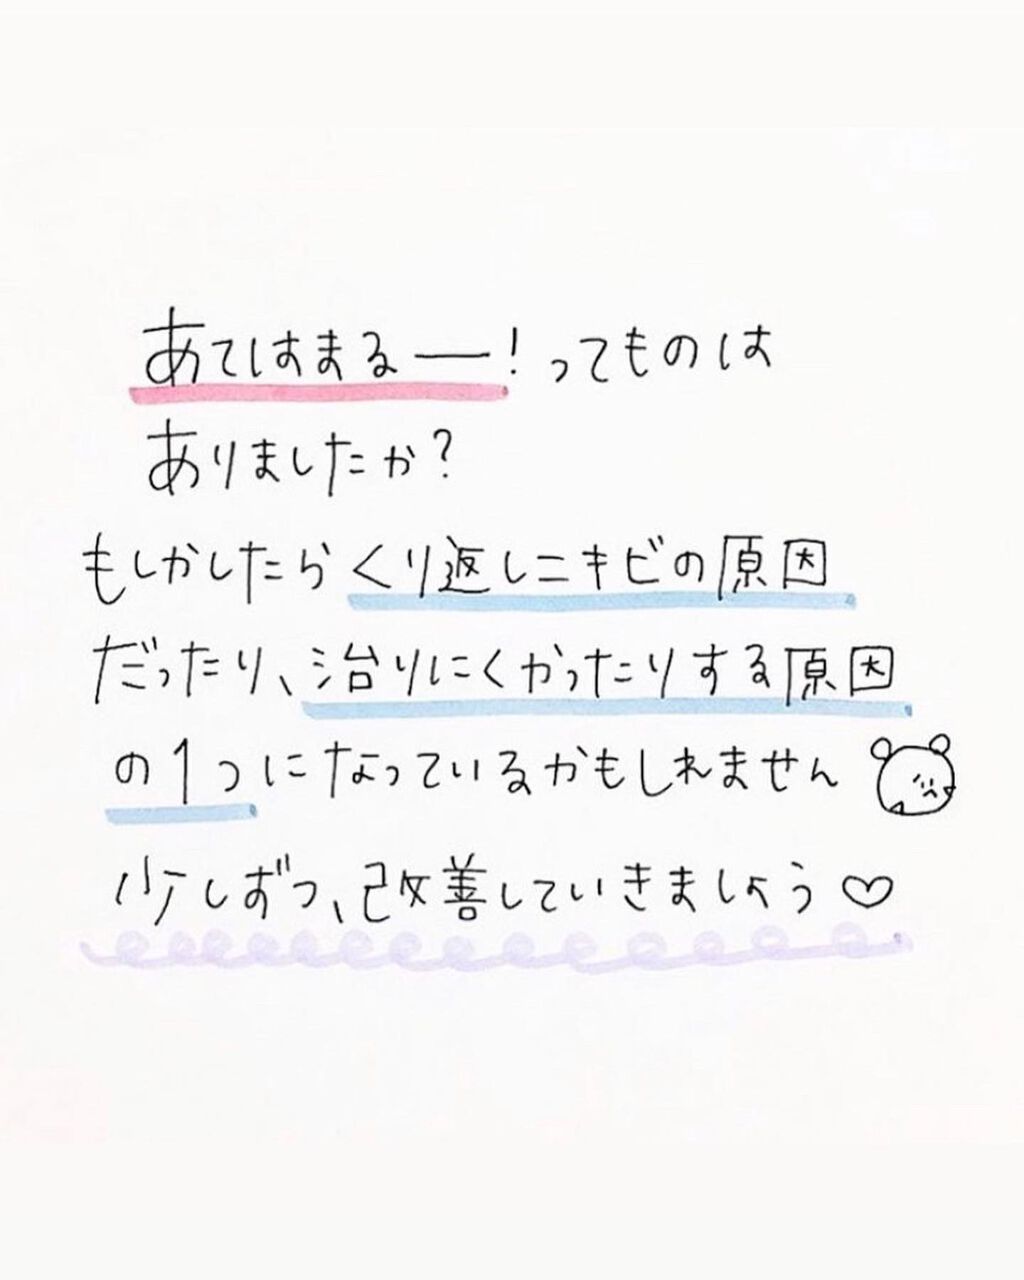 あてはまるー！ってものは
ありましたか？
もしかしたらくり返しニキビの原因
だったり、治りにくかったりする原因
の1つになっているかもしれません
少しずつ、改善していきましょう♡